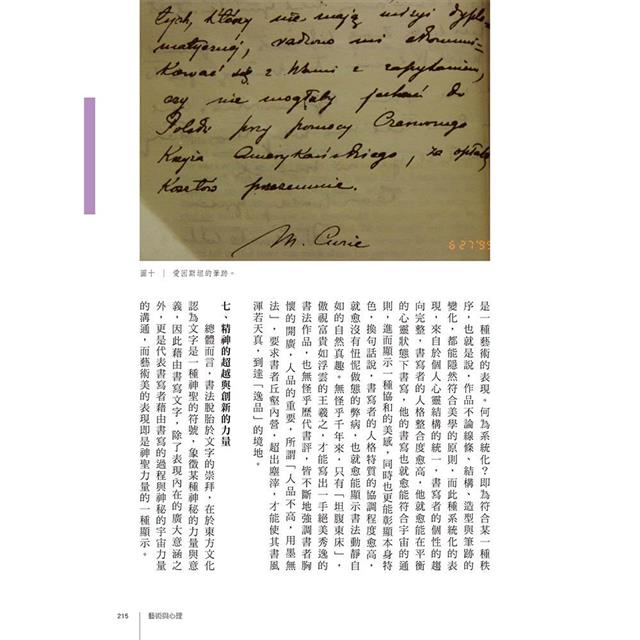 tych, którzy nie mają misyi dyplo-
matycznej, radzono mi skomuni-
kować się z Wami z zapytaniem,
czy nie mogłaby jechać do
Polski przy pomocy Czerwonego
Krzyża Amerykańskiego, za opłatą
kosztów przezemnie.
M. Curie
6 27 '99
圖十 ｜ 愛因斯坦的筆跡。
是一種藝術的表現。何為系統化？即為符合某一種秩
序，也就是說，作品不論線條、結構、造型與筆跡的
變化，都能隱然符合美學的原則，而此種系統化的表
現，來自於個人心靈結構的統一，書寫者的個性的趨
向完整，書寫者的人格整合度愈高，他就愈能在平衡
的心靈狀態下書寫，他的書寫也就愈能符合宇宙的通
則，進而顯示一種協和的美感，同時也更能彰顯本身特
色，換句話說，書寫者的人格特質的協調程度愈高，
就愈沒有忸怩做態的弊病，也就愈能顯示書法動靜自
如的自然真趣。無怪乎千年來，只有「坦腹東床」，
傲視富貴如浮雲的王羲之，才能寫出一手絕美秀逸的
書法作品，也無怪乎歷代書評，皆不斷地強調書者胸
懷的開廣，人品的重要，所謂「人品不高，用墨無
法」，要求書者丘壑內營，超出塵滓，才能使其書風
渾若天真，到達「逸品」的境地。
七、精神的超越與創新的力量
總體而言，書法脫胎於文字的崇拜，在於東方文化
認為文字是一種神聖的符號，象徵某種神秘的力量與意
義，因此藉由書寫文字，除了表現內在的廣大意涵之
外，更是代表書寫者藉由書寫的過程與神秘的宇宙力量
的溝通，而藝術美的表現即是神聖力量的一種顯示。
215 ｜ 藝術與心理